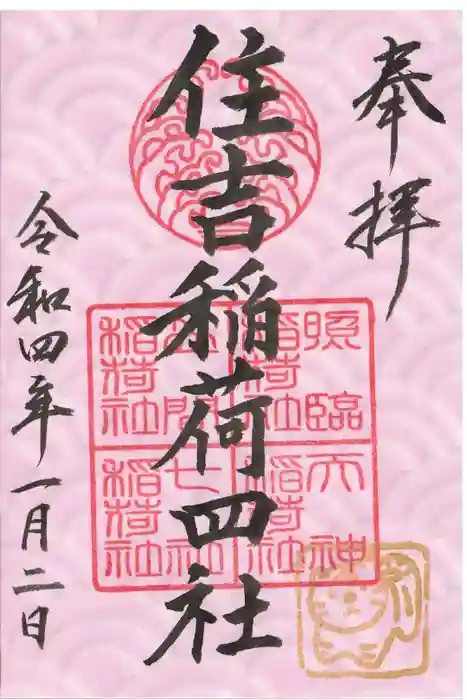 奉拝
住吉稲荷四社
照臨
稲荷社
稲荷社
天神
稲荷社
七社
稲荷社
令和四年一月二日